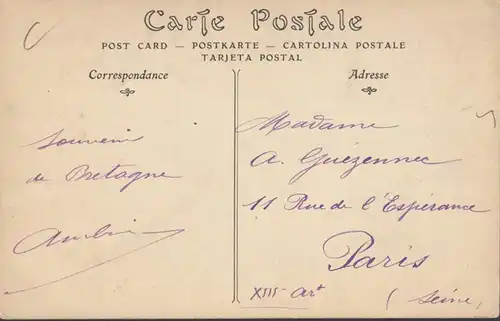 Carte Postale
POST CARD — POSTKARTE — CARTOLINA POSTALE
TARJETA POSTAL
Correspondance
Adresse
Souvenir
de Bretagne
Madame
A. Guézennec
11 Rue de l'Espérance
Paris
XIII art
(Seine)